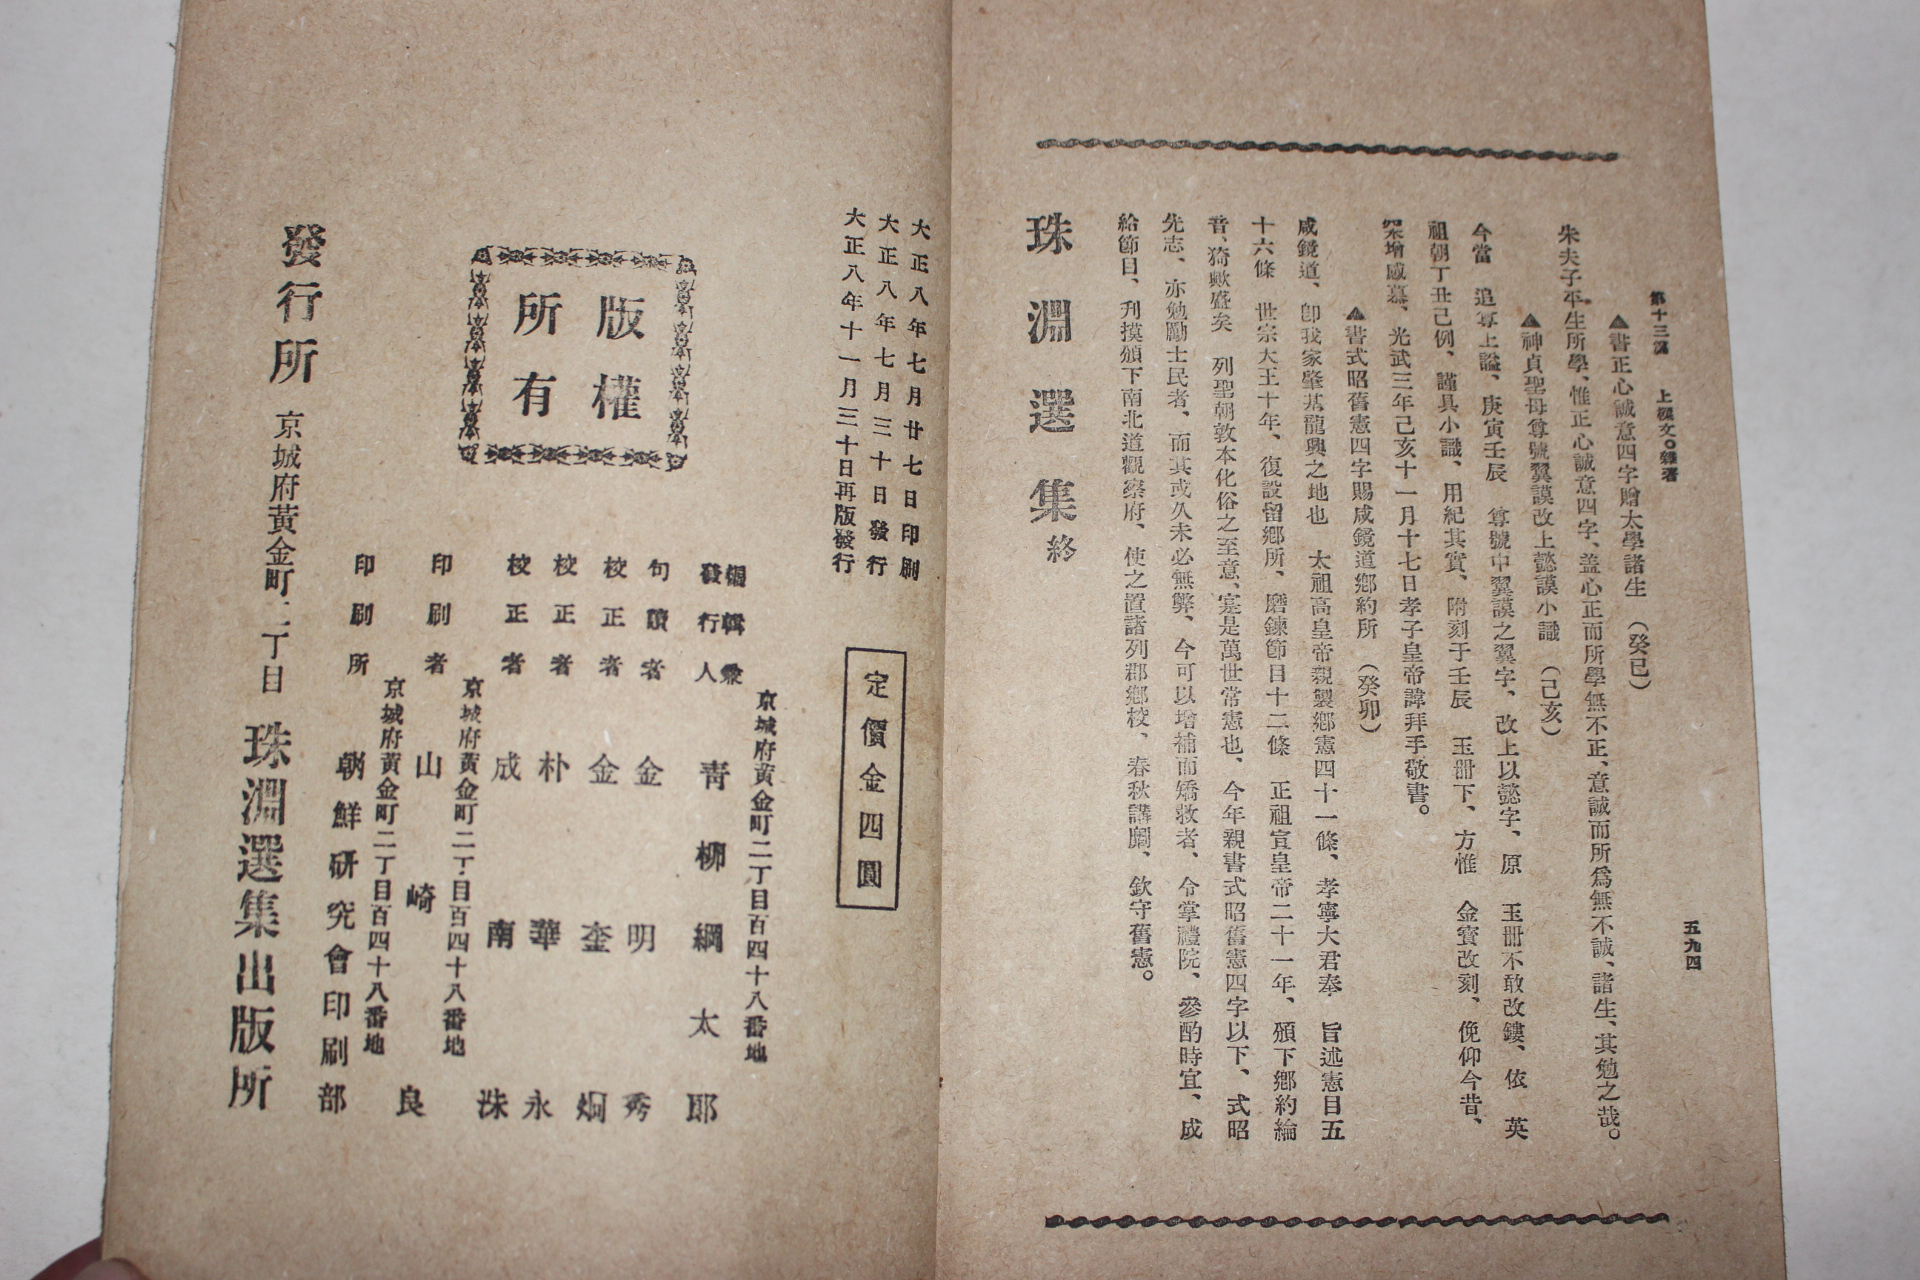 第十三編　上樑文○雜著
五九四
▲書正心誠意四字贈太學諸生（癸巳）
朱夫子平生所學、惟正心誠意四字、蓋心正而所學無不正、意誠而所爲無不誠、諸生、其勉之哉。
▲神貞聖母尊號翼謨改上懿謨小識（己亥）
今當　追尊上謚、庚寅壬辰　尊號中翼謨之翼字、改上以懿字、原　玉冊不敢改鏤、依　英
祖朝丁丑已例、謹具小識、用紀其實、附刻于壬辰　玉冊下、方惟　金寶改刻、俛仰今昔、
采增感慕、光武三年己亥十一月十七日孝子皇帝諱拜手敬書。
▲書式昭舊憲四字賜咸鏡道鄕約所（癸卯）
咸鏡道、卽我家肇基龍興之地也　太祖高皇帝親製鄕憲四十一條、孝寧大君奉　旨述憲目五
十六條　世宗大王十年、復設留鄕所、磨鍊節目十二條　正祖宣皇帝二十一年、頒下鄕約綸
音、猗歟盛矣　列聖朝敦本化俗之至意、寔是萬世常憲也、今年親書式昭舊憲四字以下、式昭
先志、亦勉勵士民者、而其或久未必無弊、今可以增補而矯救者、令掌禮院、參酌時宜、成
給節目、刋摸頒下南北道觀察府、使之置諸列郡鄕校、春秋講劘、欽守舊憲。
珠淵選集終
大正八年七月廿七日印刷
大正八年七月三十日發行
大正八年十一月三十日再版發行
定價金四圓
版權
所有
京城府黃金町二丁目百四十八番地
編輯兼
發行人　靑柳綱太郎
句讀者　金明秀
校正者　金奎炯
校正者　朴華永
校正者　成南洙
京城府黃金町二丁目百四十八番地
印刷者　山崎良
京城府黃金町二丁目百四十八番地
印刷所　朝鮮硏究會印刷部
發行所　京城府黃金町二丁目　珠淵選集出版所